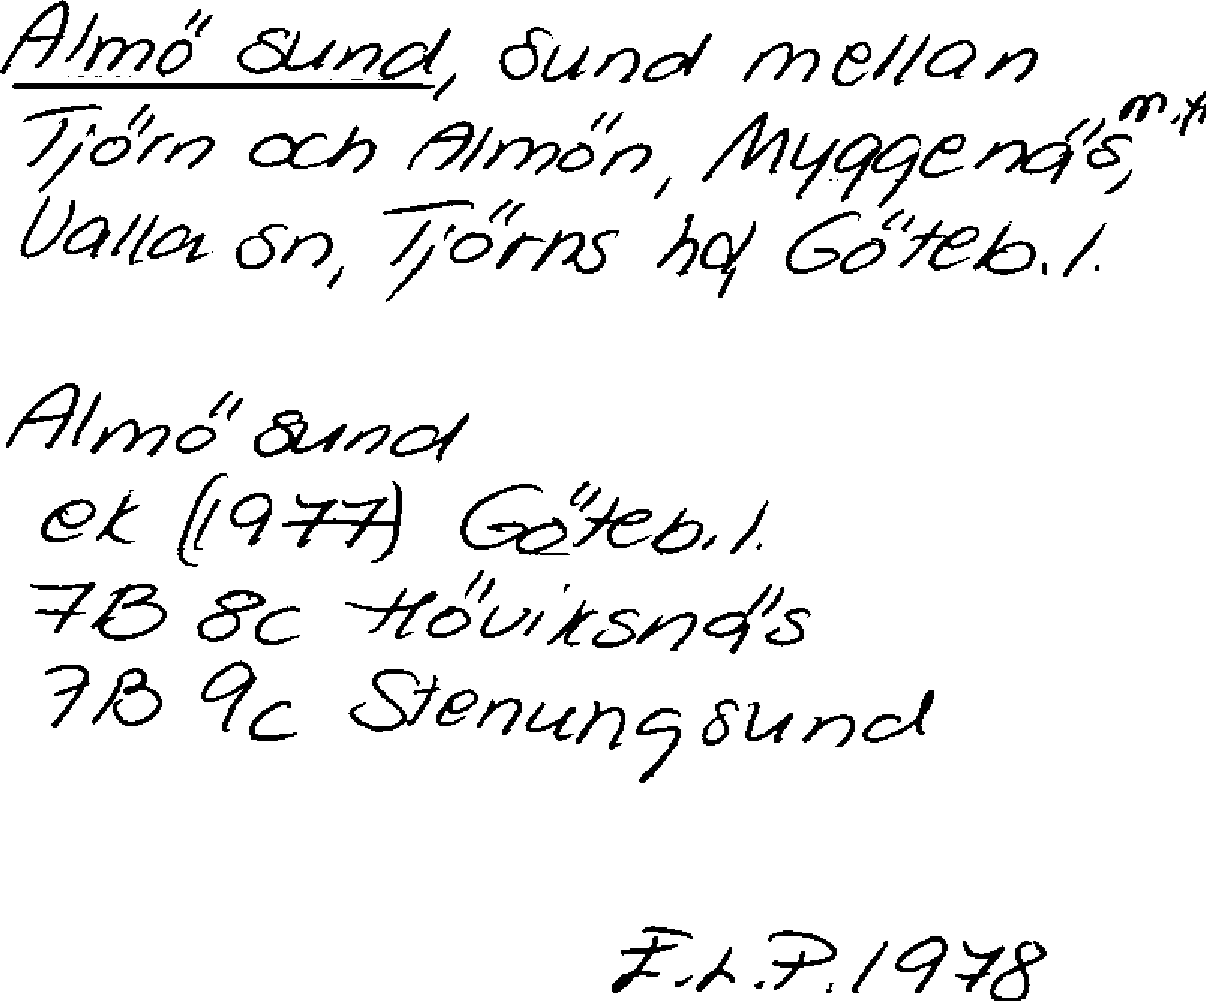 Almö sund, sund mellan
Tjörn och Almön, Myggenäs, m.fl
Valla sn, Tjörns hd, Göteb. l.
Almö sund
ek (1977) Göteb. l.
7B 8c Höviksnäs
7B 9c Stenungsund
E.L.P. 1978